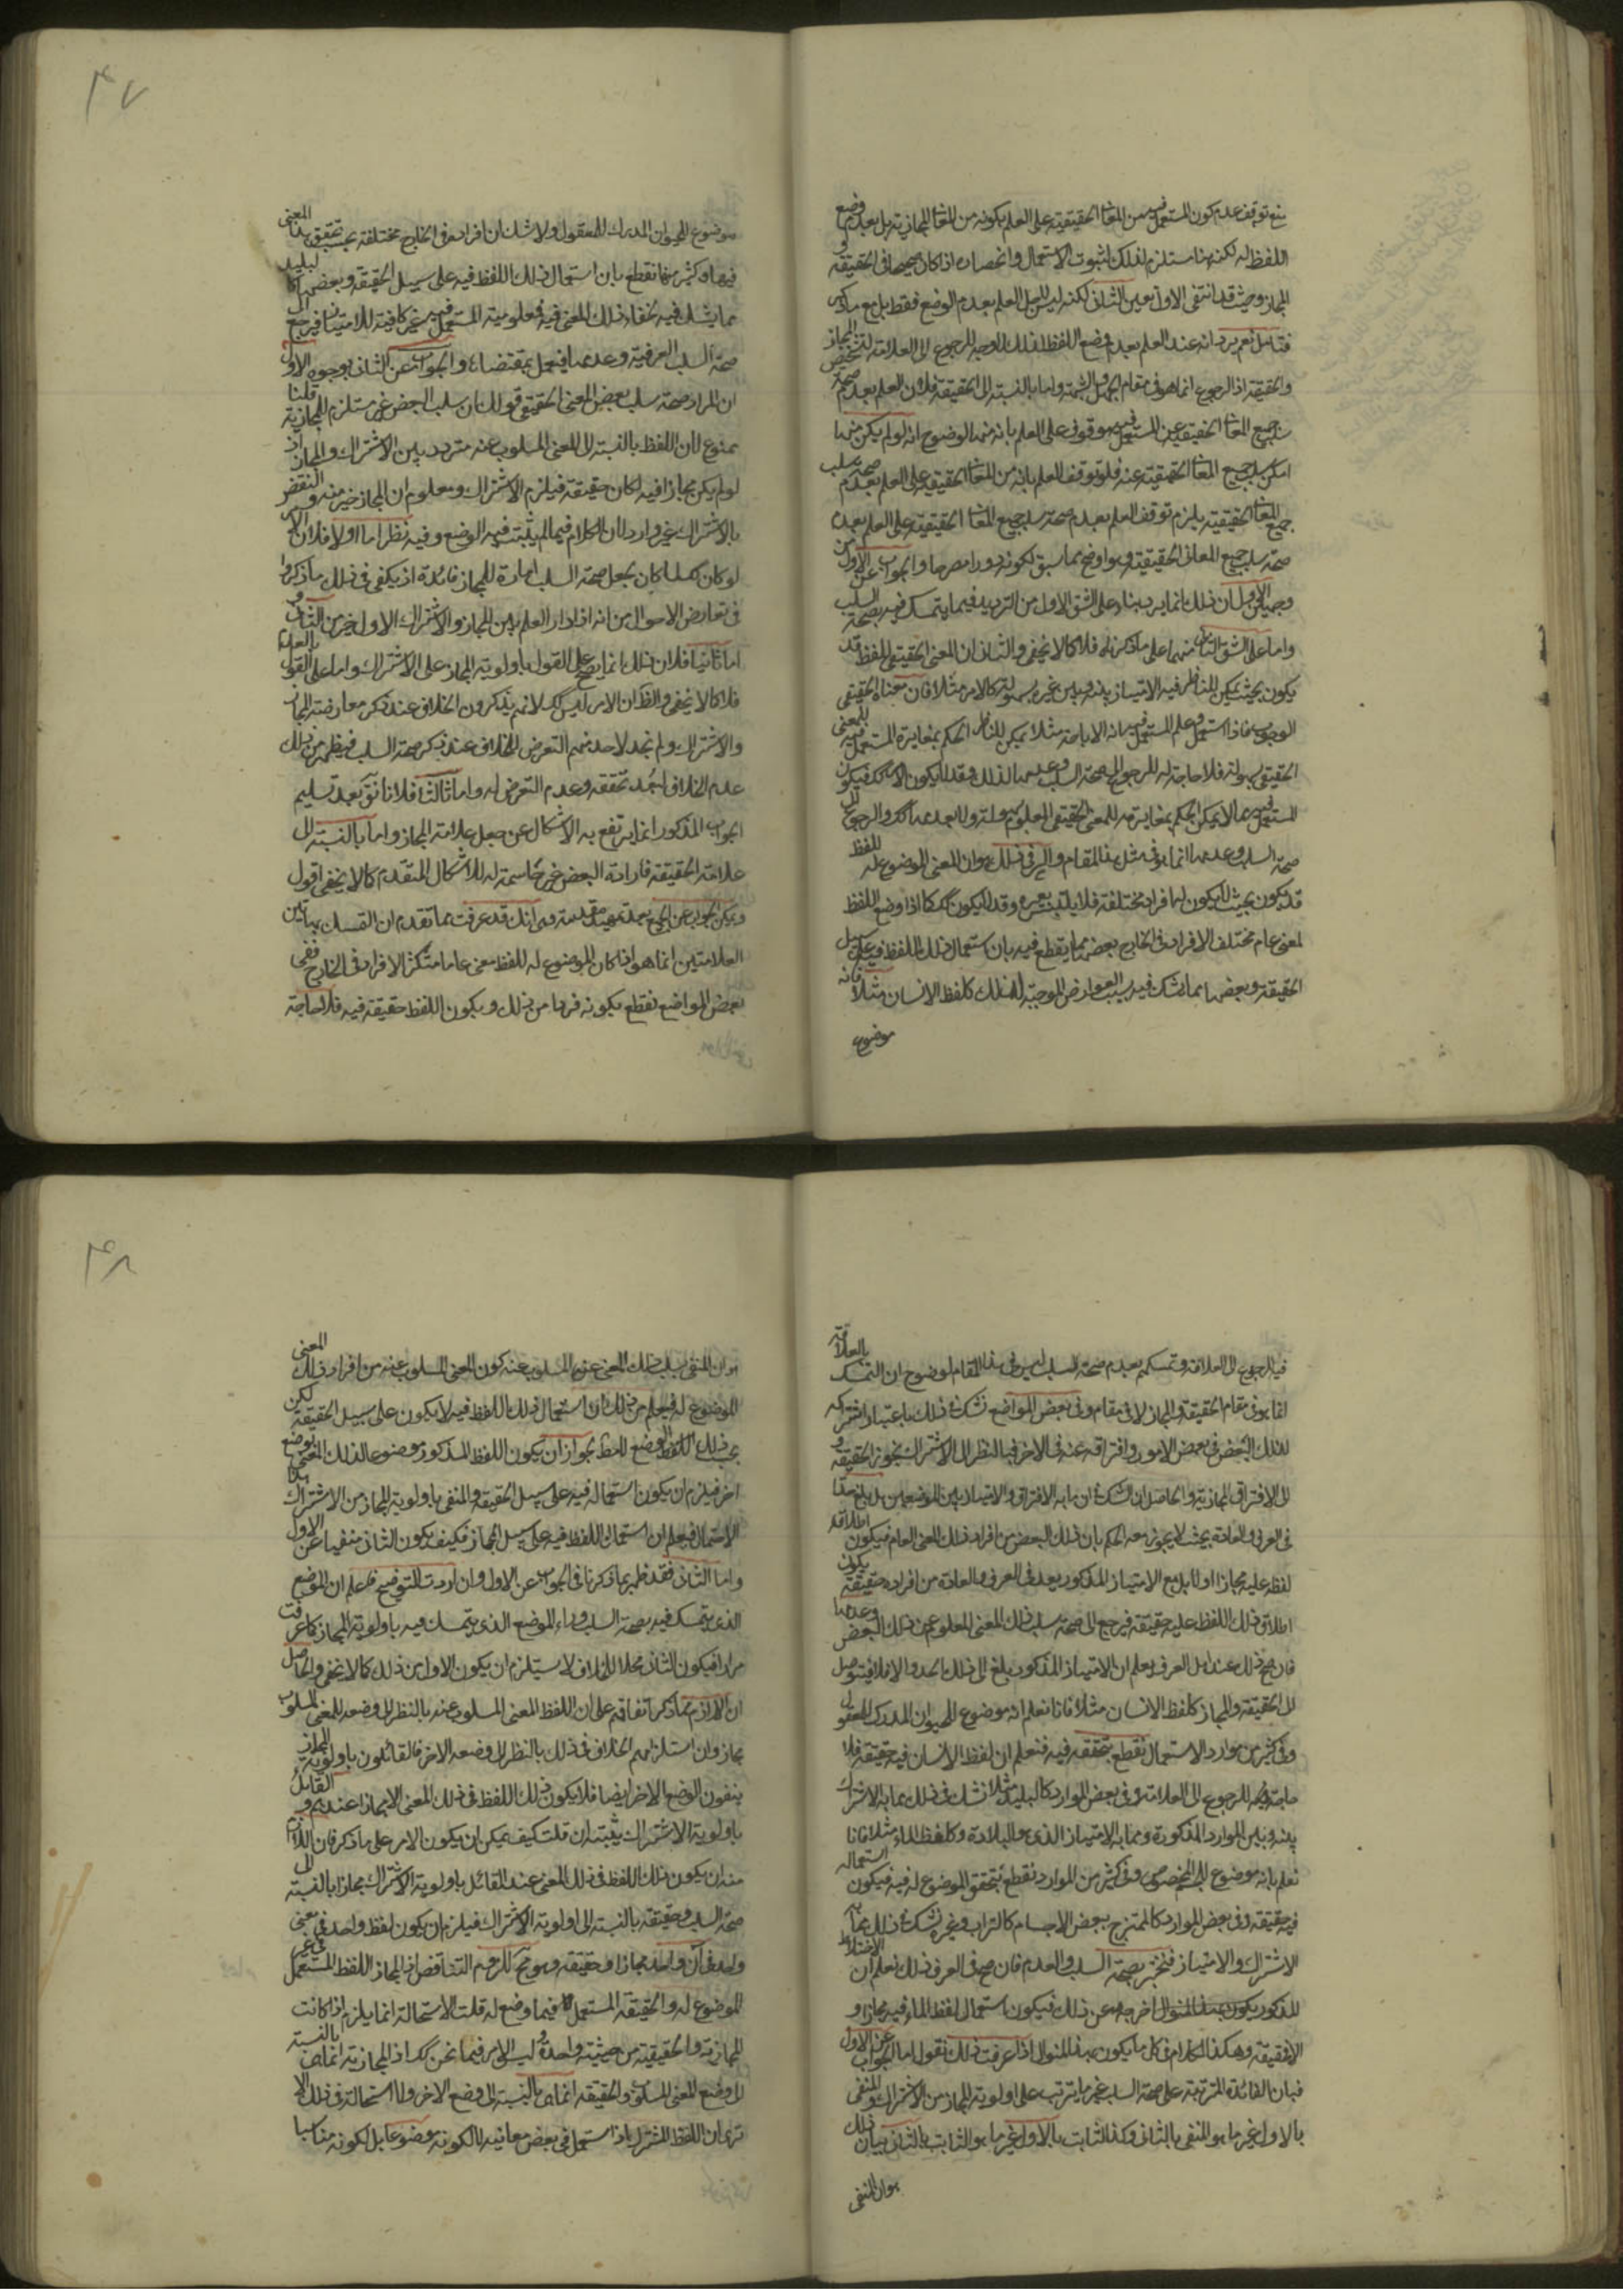 منع توقف عدم كون المستعمل فيه من المعاني الحقيقية على العلم بكونه من المعاني المجازية بل بعدم وضع
اللفظ له لكنه هنا مستلزم لذلك لثبوت الاستعمال وانحصاره اذا كان صحيحا في الحقيقة و
المجاز وحيث قد انتفى الاول تعين الثاني لكنه ليس لاجل العلم بعدم الوضع فقط بل مع ما ذكر
فتامل نعم يرد انه عند العلم بعدم وضع اللفظ لذلك لا وجه للرجوع الى العلامة لتشخيص المجاز
والحقيقة اذ الرجوع انما هو في مقام الجهل والشبهة واما بالنسبة الى الحقيقة فلان العلم بعدم صحة
سلب جميع المعاني الحقيقية عن المستعمل فيه موقوف على العلم بانه منها لوضوح انه لو لم يكن منها
امكن سلب جميع المعاني الحقيقية عنه فلو توقف العلم بانه من المعاني الحقيقية على العلم بعدم صحة سلب
جميع المعاني الحقيقية يلزم توقف العلم بعدم صحة سلب جميع المعاني الحقيقية على العلم بعدم
صحة سلب جميع المعاني الحقيقية وهو اوضح مما سبق لكونه دورا مصرحا والجواب عن الاول من
وجهين الاول ان ذلك انما يرد بناء على الشق الاول من الترديد فيما يتمسك فيه بصحة السلب
واما على الشق الثاني منهما على ما ذكرناه فلا كما لا يخفى والثاني ان المعنى الحقيقي للفظ قد
يكون بحيث يمكن للناظر فيه الامتياز بينه وبين غيره بسهولة كالامر مثلا فان معناه الحقيقي
الوجوب فاذا استعمل وعلم المستعمل فيه انه الاباحة مثلا يمكن للناظر الحكم بمغايرة المستعمل فيه للمعنى
الحقيقي بسهولة فلا حاجة له للرجوع الى صحة السلب وعدمها لذلك وقد لا يكون الامر كك فيكون
المستعمل فيه مما لا يمكن الحكم بمغايرته للمعنى الحقيقي المعلوم بسهولة ولا بعدمها كك والرجوع الى
صحة السلب وعدمها انما هو في مثل هذا المقام والسر في ذلك هو ان المعنى الموضوع له للفظ
قد يكون بحيث لا يكون لها افراد مختلفة فلا يلتبس بغيره وقد لا يكون كك كما اذا وضع اللفظ
لمعنى عام مختلف الافراد في الخارج بعضها مما يقطع فيه بان استعمال ذلك اللفظ فيه على سبيل
الحقيقة وبعضها مما يشك فيه بسبب العوارض الموجبة لذلك كلفظ الانسان مثلا فانه
موضوع
٣٧
موضوع للحيوان المدرك للمعقول ولا شك ان افراده في الخارج مختلفة بحسب تحقق هذا المعنى
فيها وكثير منها نقطع بان استعمال ذلك اللفظ فيه على سبيل الحقيقة وبعضها كالبليد
مما يشك فيه لخفاء ذلك المعنى فيه فمعلومية المستعمل فيه غير كافية للامتياز فيرجع الى
صحة السلب العرفية وعدمها فيعمل بمقتضاها والجواب عن الثاني بوجوه الاول
ان المراد صحة سلب بعض المعنى الحقيقي قولك ان سلب البعض غير مستلزم للمجازية قلنا
ممنوع لان اللفظ بالنسبة الى المعنى المسلوب عنه متردد بين الاشتراك والمجاز اذ
لو لم يكن مجازا فيه لكان حقيقة فيلزم الاشتراك ومعلوم ان المجاز خير منه والنقض
بالاشتراك غير وارد لان الكلام فيما لم يثبت فيه الوضع وفيه نظر اما اولا فلان الامر
لو كان كما كان يجعل صحة السلب امارة للمجاز فائدة اذ يكفي في ذلك ما ذكروا
في تعارض الاحوال من انه اذا دار العلم بين المجاز والاشتراك الاول خير من الثاني و
اما ثانيا فلان ذلك انما يصح على القول باولوية المجاز على الاشتراك واما على القول بالعكس
فلا كما لا يخفى والظ ان الامر ليس كك لانهم يذكرون الخلاف عند ذكر معارضة المجاز
والاشتراك ولم نجد لاحد منهم التعرض للخلاف عند ذكر صحة السلب فيظهر من ذلك
عدم الخلاف لبعد تحققه وعدم التعرض له واما ثالثا فلانا نق بعد تسليم
الجواب المذكور انما يرتفع به الاشكال عن جعل علامة المجاز واما بالنسبة الى
علامة الحقيقة فارادة البعض غير حاسمة له للاشكال المتقدم كما لا يخفى اقول
ويمكن الجواب عن الجميع بعد تمهيد مقدمة وهي انك قد عرفت مما تقدم ان التمسك بهاتين
العلامتين انما هو اذا كان الموضوع له للفظ معنى عاما متكثر الافراد في الخارج ففي
بعض المواضع نقطع بكونه فردا من ذلك وبكون اللفظ حقيقة فيه فلا حاجة
فيه الرجوع الى العلامة وتمسكهم بعدم صحة السلب ليس في هذا المقام لوضوح ان التمسك بالعلامة
انما هو في مقام الحقيقة والمجاز لا في مقام وفي بعض المواضع نشك في ذلك باعتبار اشتراكه
لذلك البعض في بعض الامور وافتراقه عنه في الاخر فبالنظر الى الاشتراك يجوز الحقيقة و
الى الافتراق المجازية والحاصل ان الشك في ان ما به الافتراق والامتياز بين الموضعين هل بلغ حدا
في العرف والعادة بحيث لا يجوز معه الحكم بان ذلك البعض من افراد ذلك المعنى العام فيكون اطلاق
لفظه عليه مجازا او لا بل مع الامتياز المذكور يعد في العرف والعادة من افراده حقيقة يكون
اطلاق ذلك اللفظ عليه حقيقة فيرجع الى صحة سلب ذلك المعنى المعلوم عن ذلك البعض وعدمها
فان صح ذلك عند اهل العرف يعلم ان الامتياز المذكور بلغ الى ذلك الحد والا فلا فيتوصل
الى الحقيقة والمجاز كلفظ الانسان مثلا فانا نعلم انه موضوع للحيوان المدرك للمعقول
وفي كثير من موارد الاستعمال نقطع بتحققه فيه فنعلم ان لفظ الانسان فيه حقيقة فلا
حاجة فيه للرجوع الى العلامة وفي بعض الموارد كالبليد مثلا نشك في ذلك بما به الاشتراك
بينه وبين الموارد المذكورة ومما به الامتياز الذي هو البلادة وكلفظ الماء مثلا فانا
نعلم بانه موضوع للمخصوص وفي كثير من الموارد نقطع بتحقق الموضوع له فيه فيكون استعماله
فيه حقيقة وفي بعض الموارد كالممتزج ببعض الاجسام كالتراب وغيره نشك في ذلك بما به
الاشتراك والامتياز فنختبر بصحة السلب والعدم فان صح في العرف ذلك نعلم ان الاختلاط
المذكور اخرجه عن ذلك فيكون استعمال لفظ الماء فيه مجازا و
الا فحقيقة وهكذا الكلام في كل ما يكون بهذا المنوال اذا عرفت ذلك نقول اما الجواب عن الاول
فبان الفائدة المترتبة على صحة السلب غير ما يترتب على اولوية المجاز من الاشتراك والمنفى
بالاول غير ما هو المنفى بالثاني وكذا الثابت بالاول غير ما هو الثابت بالثاني بيان ذلك
هو ان المنفى
٣٨
هو ان المنفى بسلب ذلك المعنى عن المسلوب عنه كون المعنى المسلوب عنه من افراد ذلك المعنى
الموضوع له فيعلم من ذلك ان استعمال ذلك اللفظ فيه لا يكون على سبيل الحقيقة لكن
بحسب ذلك الوضع فقط لجواز ان يكون اللفظ المذكور موضوعا لذلك المعنى بوضع
اخر فيلزم ان يكون استعماله فيه على سبيل الحقيقة والمنفى باولوية المجاز من الاشتراك هذا
الاحتمال فيعلم ان استعمال اللفظ فيه على سبيل المجاز فكيف يكون الثاني منفيا عن الاول
واما الثاني فقد ظهر بما ذكرنا في الجواب عن الاول وان اردت التوضيح فاعلم ان الموضع
الذي يتمسك فيه بصحة السلب وراء الموضع الذي يتمسك فيه باولوية المجاز كما عرفت
مرارا فيكون الثاني محلا للخلاف لا يستلزم ان يكون الاول من ذلك كما لا يخفى والحاصل
ان اللازم مما ذكر اتفاقهم على ان اللفظ المعنى المسلوب عنه بالنظر الى وضعه للمعنى المسلوب
مجاز وان استلزامهم الخلاف في ذلك بالنظر الى وضعه الاخر فالقائلون باولوية المجاز
ينفون الوضع الاخر ايضا فلا يكون ذلك اللفظ في ذلك المعنى الا مجازا عندهم والقائل
باولوية الاشتراك يثبته ان قلت كيف يمكن ان يكون الامر على ما ذكر فان اللازم
منه ان يكون ذلك اللفظ في ذلك المعنى عند القائل باولوية الاشتراك مجازا بالنسبة الى
صحة السلب وحقيقة بالنسبة الى اولوية الاشتراك فيلزم ان يكون لفظ واحد في معنى
واحد في آن واحد مجازا وحقيقة وهو مح للزوم التناقض اذ المجاز اللفظ المستعمل في غير
الموضوع له والحقيقة المستعمل فيما وضع له قلت الاستحالة انما يلزم اذا كانت
المجازية والحقيقية من حيثية واحدة وليس الامر فيما نحن كك اذ المجازية انما هي بالنسبة
الى وضع المعنى المسلوب والحقيقة انما هي بالنسبة الى وضع الاخر ولا استحالة في ذلك الا
ترى ان اللفظ المشترك اذا استعمل في بعض معانيه لا لكونه موضوعا بل لكونه مناسبا